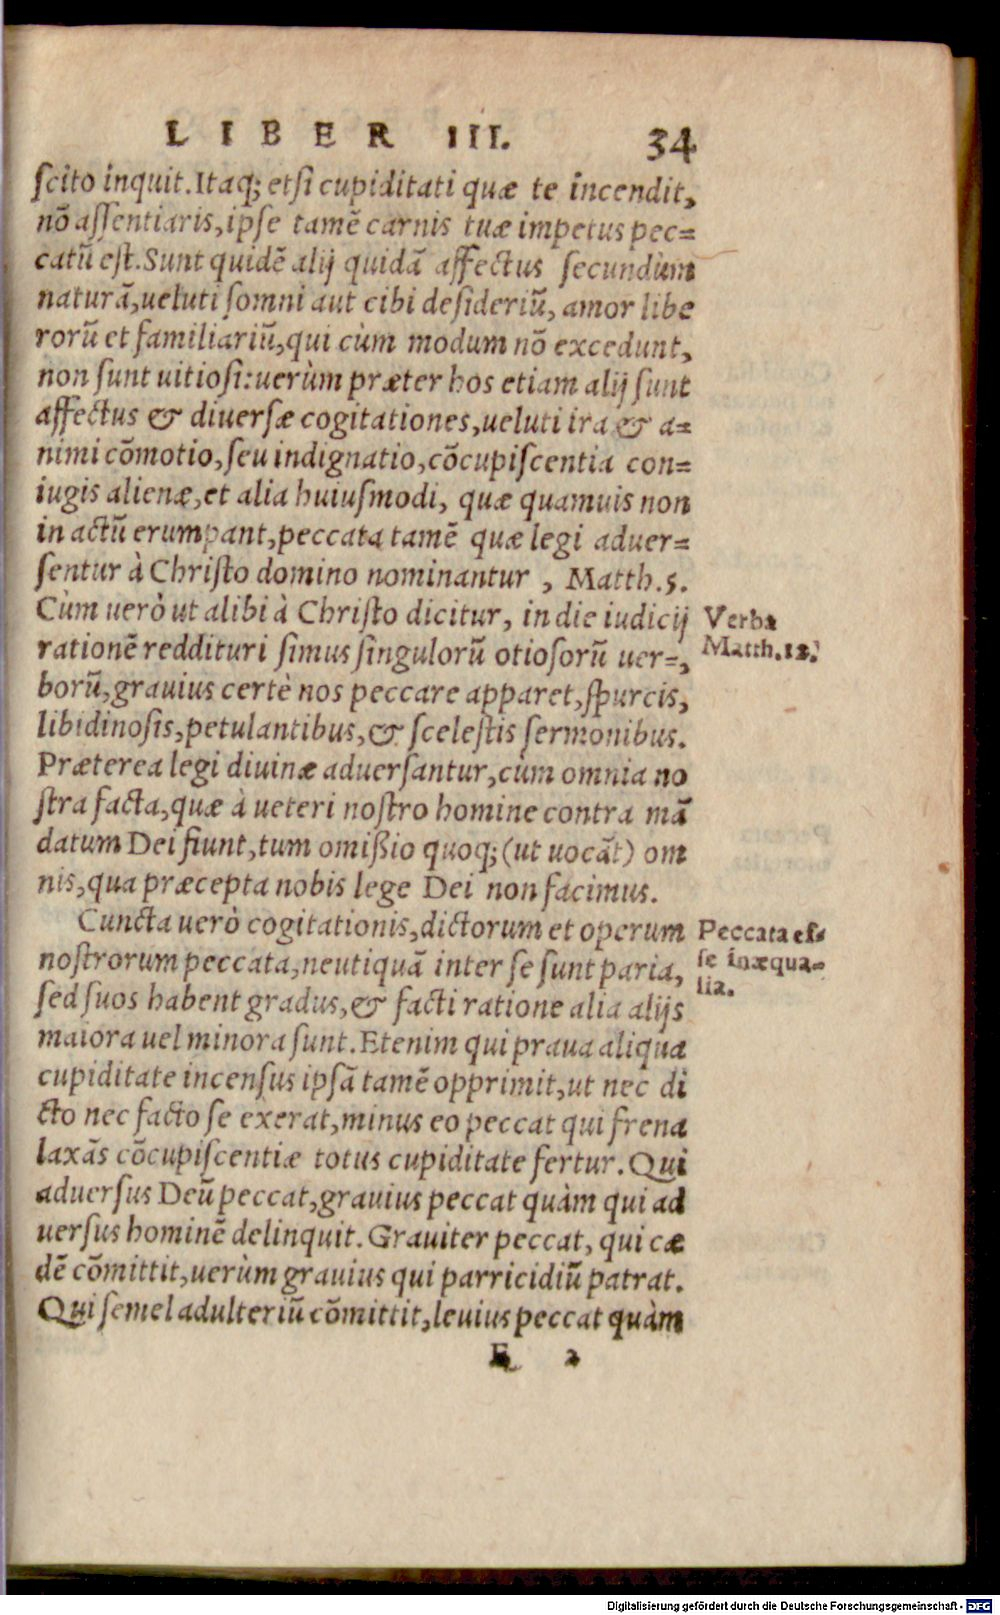 LIBER III. 34
ſcito inquit. Itaq; etſi cupiditati quæ te incendit,
nō aſſentiaris, ipſe tamē carnis tuæ impetus pec=
catū eſt. Sunt quidē alij quidā affectus ſecundùm
naturā, ueluti ſomni aut cibi deſideriū, amor libe
rorū et familiariū, qui cùm modum nō excedunt,
non ſunt uitioſi: uerùm præter hos etiam alij ſunt
affectus & diuerſæ cogitationes, ueluti ira & a=
nimi cōmotio, ſeu indignatio, cōcupiſcentia con=
iugis alienæ, et alia huiuſmodi, quæ quamuis non
in actū erumpant, peccata tamē quæ legi aduer=
ſentur à Chriſto domino nominantur, Matth. 5.
Cùm uerò ut alibi à Chriſto dicitur, in die iudicij
Verba
rationē reddituri ſimus ſingulorū otioſorū uer=,
Matth. 12.
borū, grauius certè nos peccare apparet, ſpurcis,
libidinoſis, petulantibus, & ſceleſtis ſermonibus.
Præterea legi diuinæ aduerſantur, cùm omnia no
ſtra facta, quæ à ueteri noſtro homine contra mā
datum Dei fiunt, tum omißio quoq; (ut uocāt) om
nis, qua præcepta nobis lege Dei non facimus.
Cuncta uerò cogitationis, dictorum et operum
Peccata eſ=
noſtrorum peccata, neutiquā inter ſe ſunt paria,
ſe inæqua=
ſed ſuos habent gradus, & facti ratione alia alijs
lia.
maiora uel minora ſunt. Etenim qui praua aliqua
cupiditate incenſus ipſā tamē opprimit, ut nec di
cto nec facto ſe exerat, minus eo peccat qui frena
laxās cōcupiſcentiæ totus cupiditate fertur. Qui
aduerſus Deū peccat, grauius peccat quàm qui ad
uerſus hominē delinquit. Grauiter peccat, qui cæ
dē cōmittit, uerùm grauius qui parricidiū patrat.
Qui ſemel adulteriū cōmittit, leuius peccat quàm
E 2
Digitalisierung gefördert durch die Deutsche Forschungsgemeinschaft - DFG